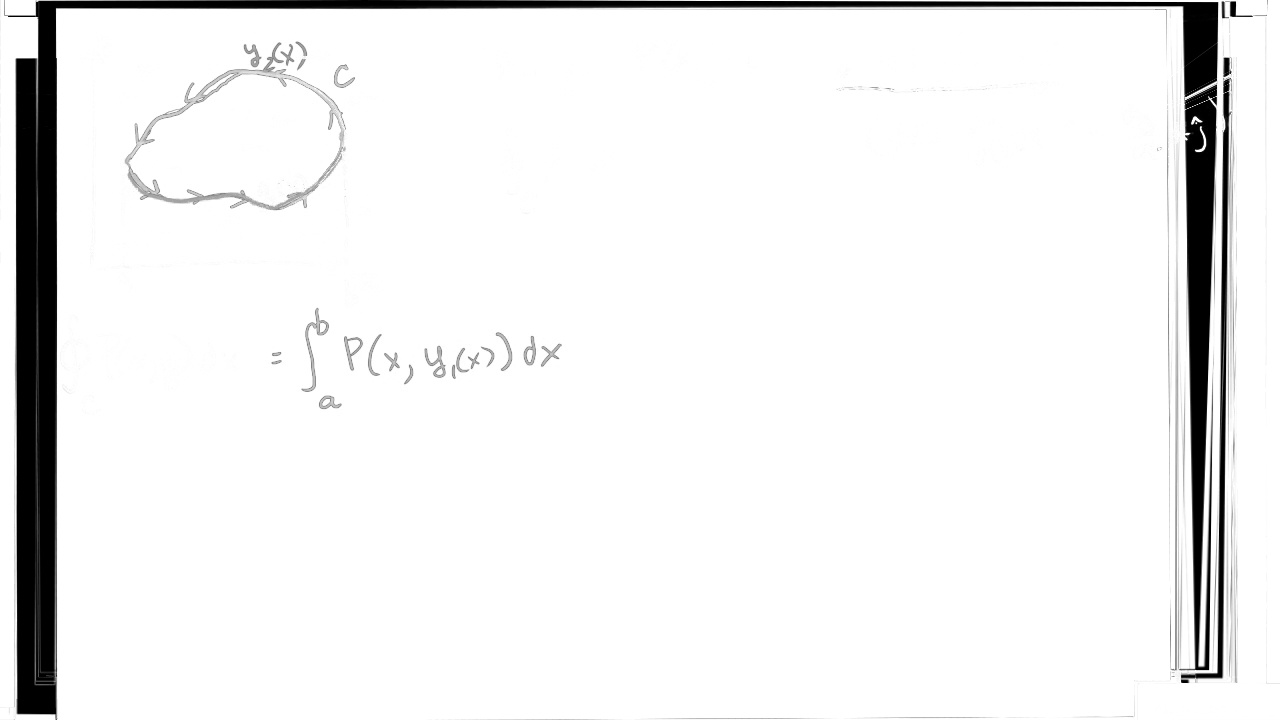 y₂(x)
C
ĵ
= ∫ₐᵇ P(x, y₁(x)) dx